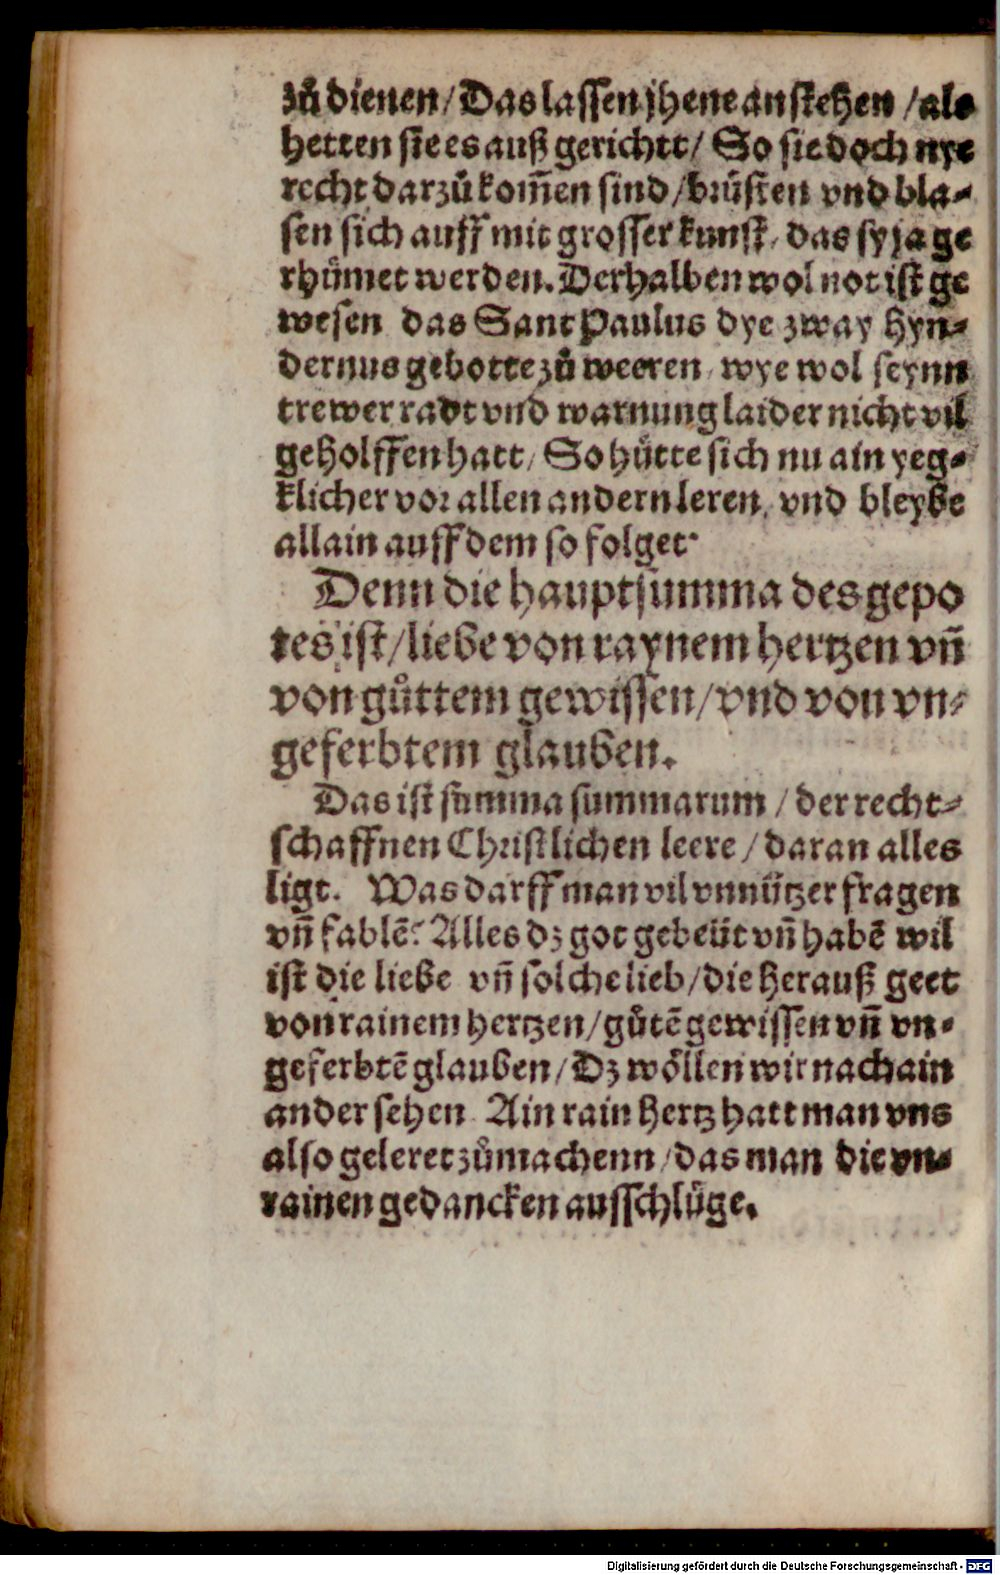 zů dienen / Das lassen jhene anstehen / als
hetten sie es auß gericht / So sie doch nye
recht darzů kom̄en sind / brüsten vnd bla⸗
sen sich auff mit grosser kunst, das sy ja ge
rhümet werden. Derhalben wol not ist ge
wesen das Sant Paulus dye zway hyn⸗
dernus gebotte zů weeren, wye wol seynn
trewer radt vnd warnung laider nicht vil
geholffen hatt, So hütte sich nu ain yeg⸗
klicher vor allen andern leren, vnd bleybe
allain auff dem so folget.
Denn die hauptsumma des gepo
tes ist / liebe von raynem hertzen vn̄
von gůttem gewissen / vnd von vn⸗
geferbtem glauben.
Das ist summa summarum / der recht⸗
schaffnen Christlichen leere / daran alles
ligt. Was darff man vil vnnützer fragen
vn̄ fablē? Alles dz got gebeüt vn̄ habē wil
ist die liebe vn̄ solche lieb / die herauß geet
von rainem hertzen / gůtē gewissen vn̄ vn⸗
geferbtē glauben / Dz wöllen wir nach ain
ander sehen Ain rain hertz hatt man vns
also geleret zůmachenn / das man die vn⸗
rainen gedancken ausschlüge.
Digitalisierung gefördert durch die Deutsche Forschungsgemeinschaft - DFG